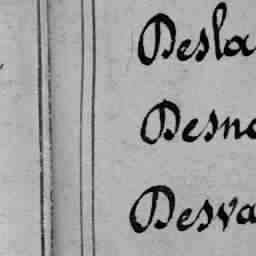 Desla
Desno
Desva